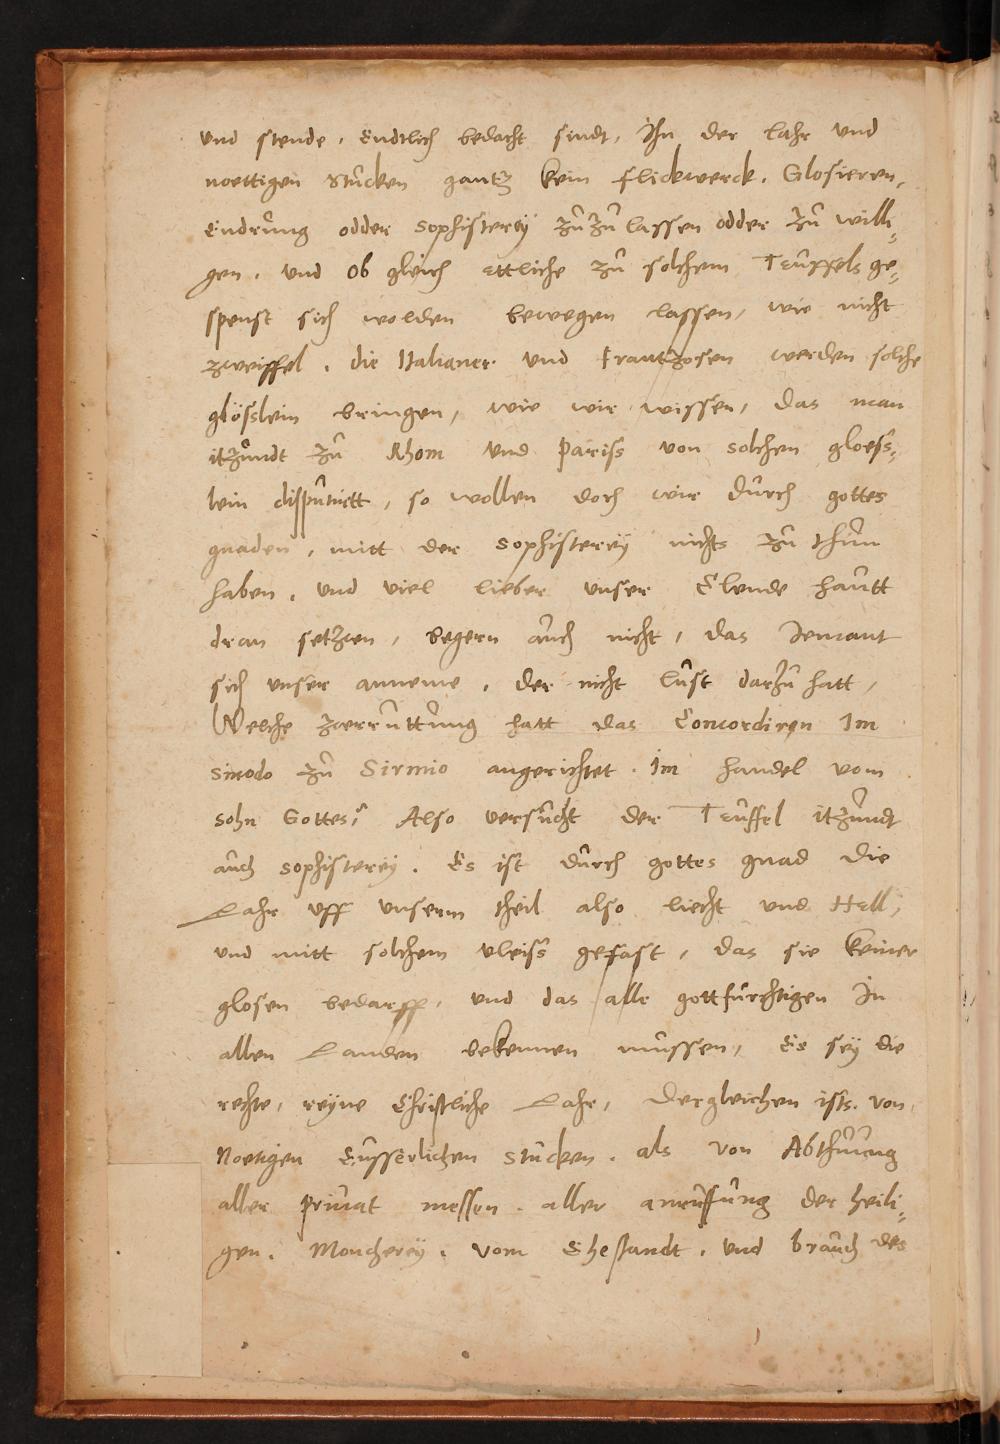 und stende, Endtlich bedacht sindt, Ihn der lahr und
noettigen Stucken gantz kein flickwerck, Glosieren,
Endrung odder Sophisterey zu zu lassen odder zu willi-
gen, und ob gleich ettliche zu solchem Teuffels ge-
spenst sich wolden bewegen lassen, wie nicht
zweiffel, die Italianer und Frantzosen werden solche
glösslein bringen, wie wir wissen, das man
itzundt zu Rhom und Pariss von solchen gloess-
lein disputiett, so wollen doch wir durch gottes
gnaden, mitt der Sophisterey nichts zu thun
haben, und viel lieber unser Elende hautt
dran setzen, begern auch nicht, das Iemant
sich unser anneme, der nicht lust darzu hatt,
Welche zerruttung hatt das Concordiren Im
Sinodo zu Sirmio angerichtet. Im handel vom
Sohn Gottes? Also versucht der Teuffel itzundt
auch Sophisterey. Es ist durch gottes gnad die
Lahr uff unserm theil also liecht und Hell,
und mitt solchem vleiss gefast, das sie keiner
glosen bedarff, und das alle gottfurchtigen In
allen Landen bekennen mussen, Es sey die
rechte, reyne Christliche Lahr, Dergleichen ists von
Noetigen Eusserlichen Stucken, als von Abthuung
aller Privat messen, aller anruffung der heili-
gen, Moncherey, vom Ehestandt, und brauch des